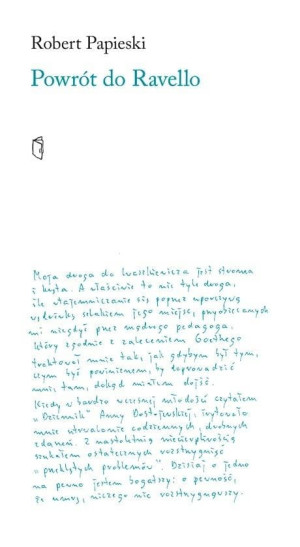 Robert Papieski
Powrót do Ravello
Moja droga do Iwaszkiewicza jest stroma
i kręta. A właściwie to nie tyle droga,
ile wtajemniczanie się poprzez uporczywą
wędrówkę szlakiem jego miejsc, przyobiecanych
mi niegdyś przez mądrego pedagoga,
który zgodnie z zaleceniem Goethego
traktował mnie tak, jak gdybym był tym,
czym być powinienem, by doprowadzić
mnie tam, dokąd miałem dojść.
Kiedy w bardzo wczesnej młodości czytałem
„Dziennik” Anny Dostojewskiej, irytowało
mnie utrwalanie codziennych, drobnych
zdarzeń. Z nastoletnią niecierpliwością
szukałem ostatecznych rozstrzygnięć
„przeklętych problemów”. Dzisiaj o jedno
na pewno jestem bogatszy: o pewność,
że umrę, niczego nie rozstrzygnąwszy.